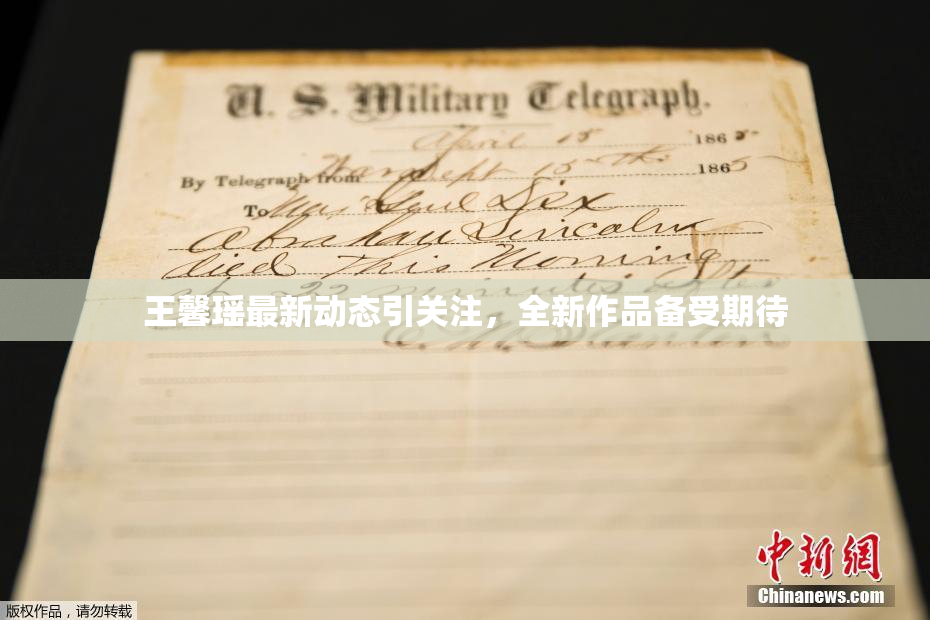 U. S. Military Telegraph.
April 15 1865
By Telegraph from War Dept 15th 1865
To Maj Genl Dix
Abraham Lincoln
died this Morning
at 22 minutes after
王馨瑶最新动态引关注，全新作品备受期待
E. M. Stanton
中新网
Chinanews.com
版权作品，请勿转载